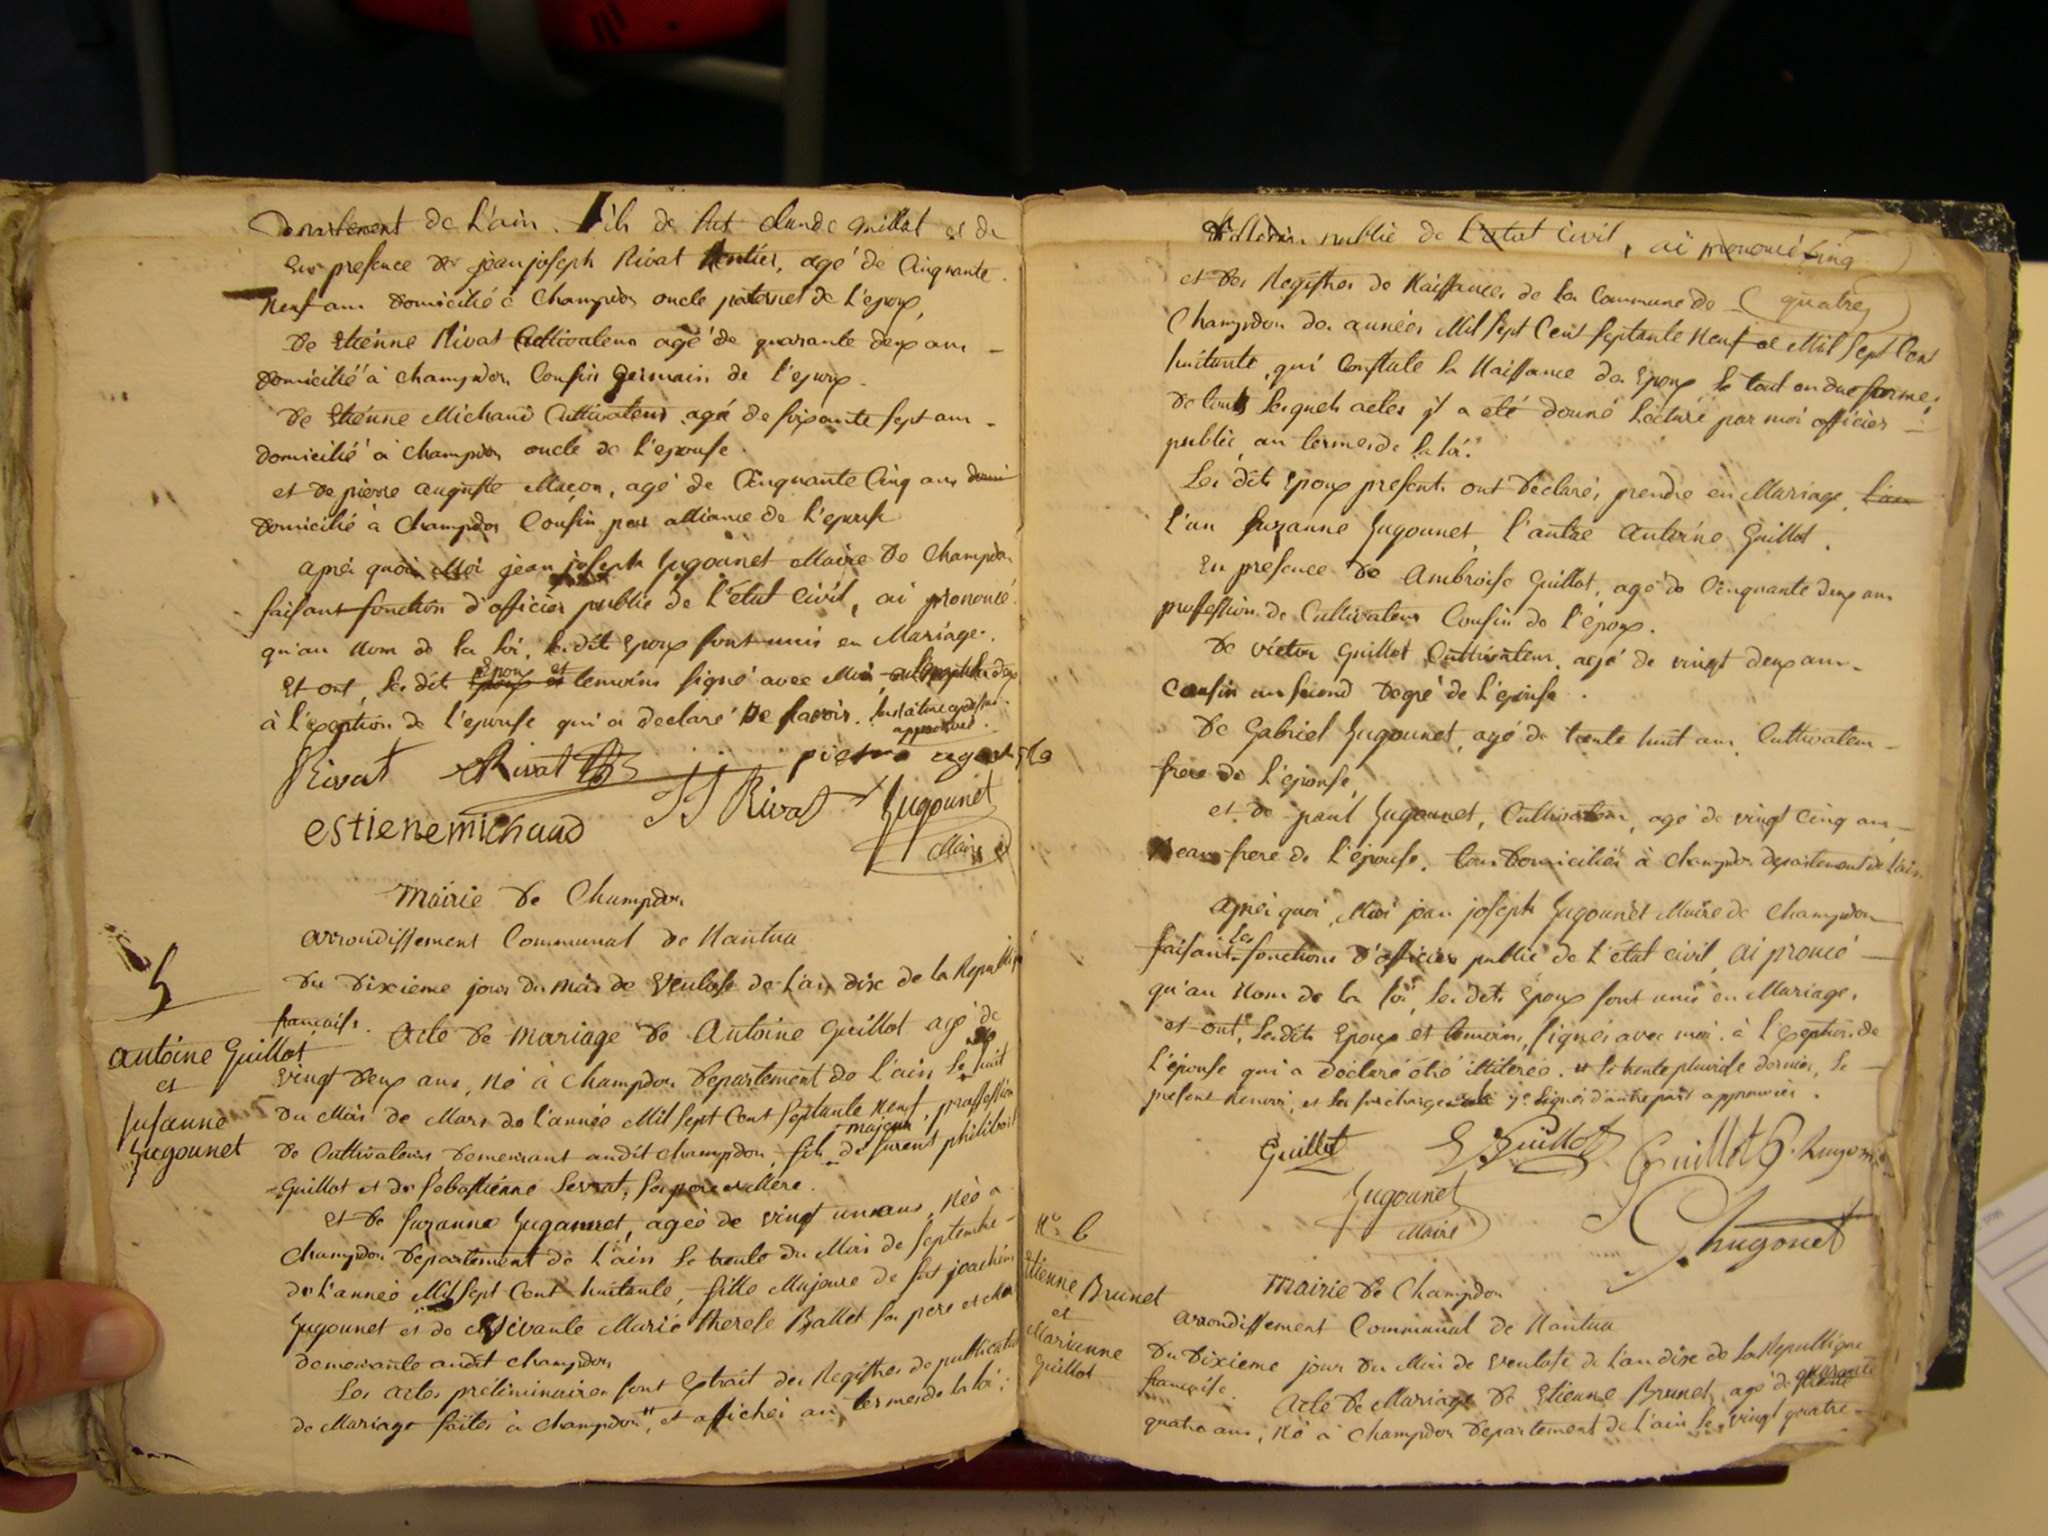 Departement de L'ain. fils de fut Claude Guillot et de
En presence de jean joseph Rivat Rentier, agé de Cinquante
Neuf ans domicilié à Champdor oncle paternel de L'epoux,
De Etiénne Rivat Cultivateur agé de quarante deux ans
domicilié à champdor Cousin germain de l'epoux.
De Etiénne Michaud Cultivateur agé de soixante sept ans
domicilié à champdor oncle de L'epouse.
et De pierre auguste Maçon, agé de Cinquante Cinq ans
domicilié à Champdor Cousin par alliance de L'epouse
aprés quoi Moi jean joseph Jugounet Maire De Champdor
faisant fonction d'officier public de L'état Civil, ai prononcé
qu'au Nom de la loi, les dits Epoux sont unis en Mariage.
Et ont, les dits Epoux et temoins signé avec Moi
à l'exception de l'epouse qui a declaré Ne savoir.
approuvée.
Rivat Rivat pierre
estienemichaud JJ Rivat Jugounet
Maire
Mairie De Champdor
arrondissement Communal de Nantua
5
Du Dixieme jour du Mois de Ventose de L'an dix de la Republique
française. Acte De Mariage De Antoine Guillot agé de
antoine Guillot
et
Susanne
Jugounet
vingt deux ans, Né à Champdor Departement de L'ain le huit
du Mois de Mars de l'année Mil sept Cent septante Neuf, proffession
de Cultivateur Demeurant audit Champdor, fils majeur de furent philibert
Guillot et de Sebastiénne Serrat, ses pere et Mere.
Et De Suzanne Jugounet, ageé de vingt un ans, Neé a
Champdor Departement de L'ain le trente du Mois de Septembre
de L'anneé Mil sept Cent huitante, fille Majeure de fut joachim
Jugounet et de vivante Marie therese Ballet ses pere et Mere
demeurante audit champdor
Les actes préliminaires sont Extrait des Registres de publication
de Mariage faites à champdor, et affichés au termes de la loi;
public de L'etat Civil, ai prononcé Cinq
et Des Registres de Naissances de la Commune de (quatre)
Champdor des années Mil sept Cent septante Neuf et Mil sept Cent
huitante, qui Constate la Naissance des Epoux le tout en due forme.
De touts lesquels actes il a eté donné Lecture par moi officier
public, au termes de la loi.
Les dits Epoux presents ont déclarés prendre en Mariage,
l'un Suzanne Jugounet, l'autre Antoine Guillot.
En presence De Ambroise Guillot, agé de Cinquante deux ans
proffession de Cultivateur Cousin de l'époux.
De victor Guillot Cultivateur, agé de vingt deux ans
Cousin au second Degré de L'épouse.
De Gabriel Jugounet, agé de trente huit ans Cultivateur
frere de L'épouse,
et de paul Jugounet, Cultivateur, agé de vingt Cinq ans
frere de L'épouse, tous Domiciliés à Champdor departement de L'ain
Aprés quoi, Moi jean joseph Jugounet Maire de Champdor
faisant les fonctions D'officier public de L'état civil, ai proncé
qu'au Nom de la loi, les dits Epoux sont unis en Mariage,
et ont, les dits Epoux et temoins, signés avec moi à l'exeption de
L'épouse qui a déclaré étre illitereé. le trente pluviose dernier, le
present Renvoi, et les surcharges lignes d'autre part approuvés.
Guillot Guillot Guillot
Jugounet
Maire
hugonet
No 6
Etienne Brunet
et
Marianne
Guillot
Mairie De Champdor
arrondissement Communal de Nantua
Du Dixieme jour Du Mois de Ventose de L'an dix de La Republique
française. Acte De Mariage De Etienne Brunet, agé de quarante
quatre ans, Né a Champdor Departement de L'ain le vingt quatre